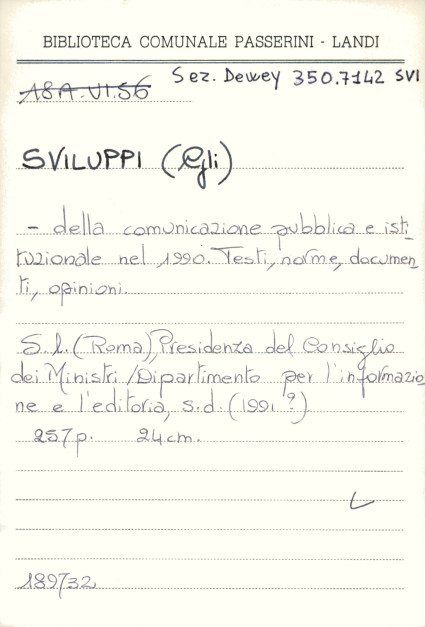 BIBLIOTECA COMUNALE PASSERINI - LANDI
18A.VI.56 Sez. Dewey 350.7142 SVI
SVILUPPI (Gli)
- della comunicazione pubblica e isti
tuzionale nel 1990. Testi, norme, documen
ti, opinioni.
S.l. (Roma), Presidenza del Consiglio
dei Ministri / Dipartimento per l'informazio
ne e l'editoria, s.d. (1991?)
257p. 24cm.
189732